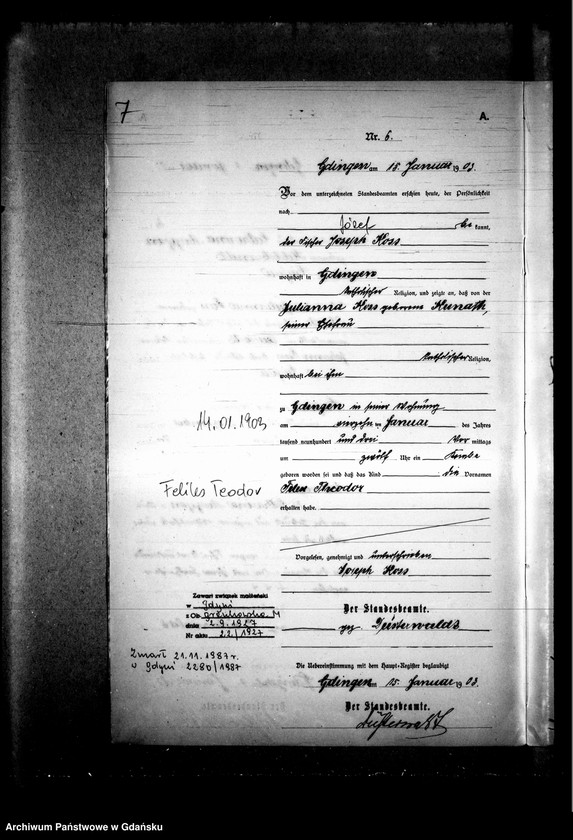 7
A.
Nr. 6.
Gdingen am 15. Januar 1903.
Vor dem unterzeichneten Standesbeamten erschien heute, der Persönlichkeit
nach
Józef be kannt,
der Fischer Joseph Koss
wohnhaft in Gdingen
katholischer Religion, und zeigte an, daß von der
Julianna Koss geborene Kunath,
seiner Ehefrau
katholischer Religion,
wohnhaft bei ihm
zu Gdingen in seiner Wohnung
14.01.1903
am ten Januar des Jahres
tausend neunhundert und drei Vor mittags
um zwölf Uhr ein Knabe
geboren worden sei und daß das Kind die Vornamen
Feliks Teodor
Felix Theodor
erhalten habe.
Vorgelesen, genehmigt und unterschrieben
Joseph Koss
Der Standesbeamte.
gez.
Zawarł związek małżeński
w Gdyni
z Ob.
dnia 2.9.1927
Nr aktu 22/1927
Zmarł 21.11.1987r.
w Gdyni 2280/1987
Die Uebereinstimmung mit dem Haupt-Register beglaubigt
Gdingen am 15. Januar 1903.
Der Standesbeamte.
Archiwum Państwowe w Gdańsku